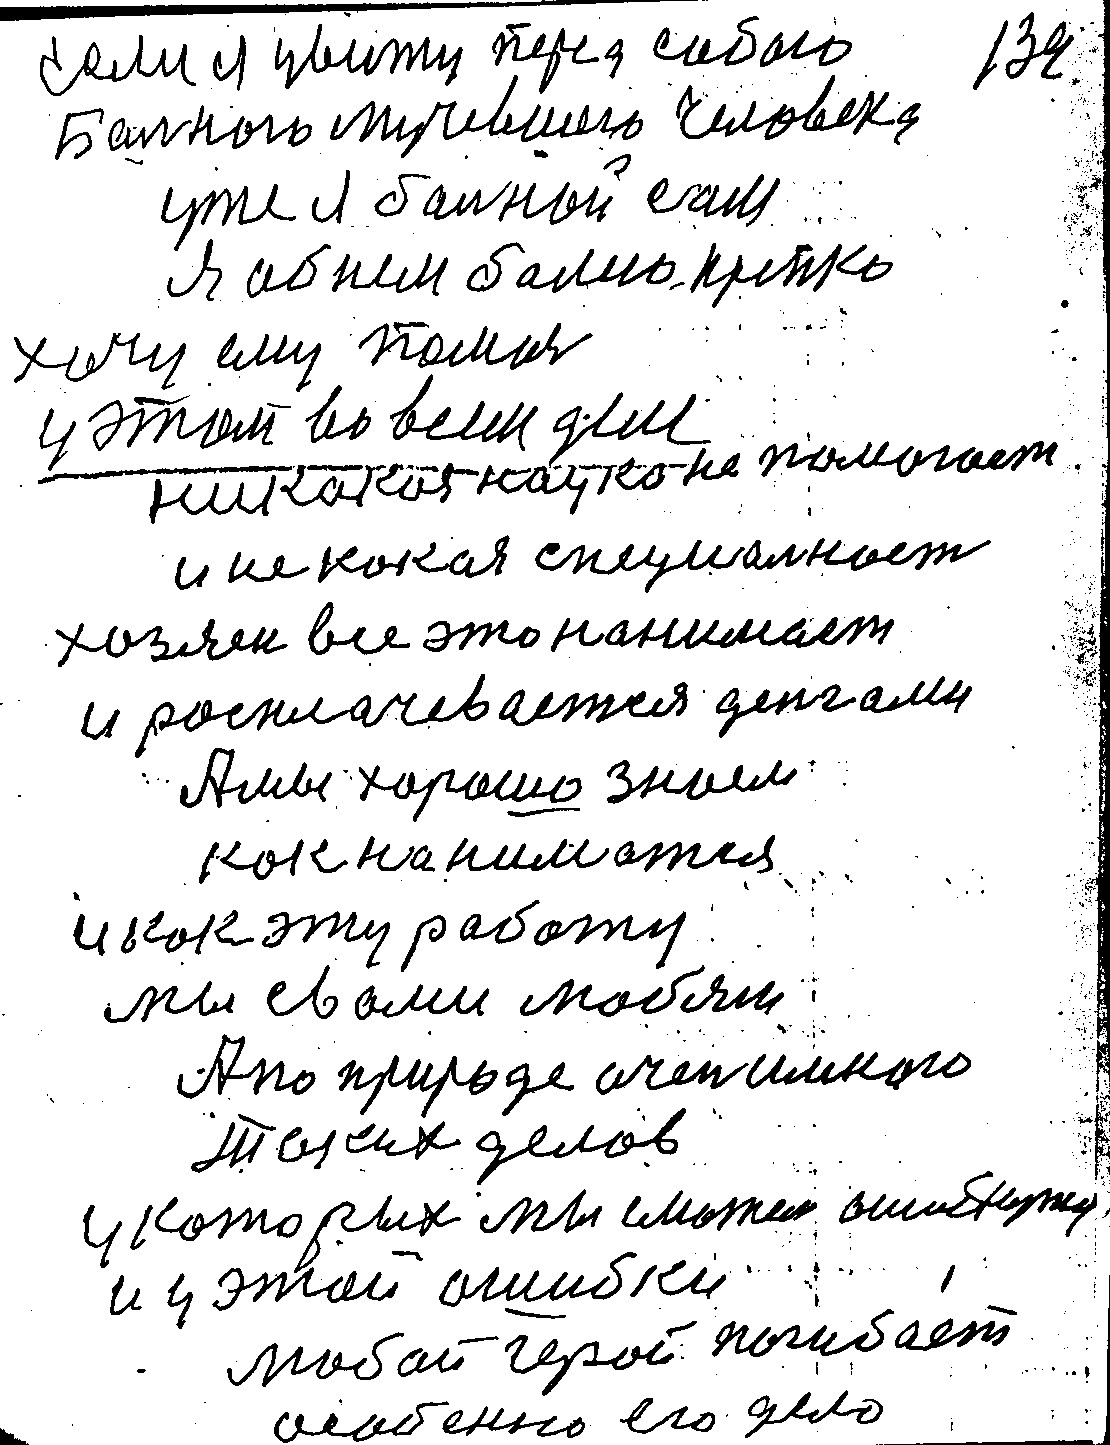 если я увижу перед собого 139
Балного мучевшего человека
уже я балный сам
Я об нем балею крепко
хочу ему помоч
у этом во всем деле
никокоя науко не помогоет
и не кокоя специалност
хозяен все это нанимает
и росплачевается денгами
А мы хорошо знаем
кок наниматся
и кок эту работу
мы с вами любям
А по природе очен много
таких делов
у которых мы сможем
и у этой ошибки
любой герой погибает
особенно его дело